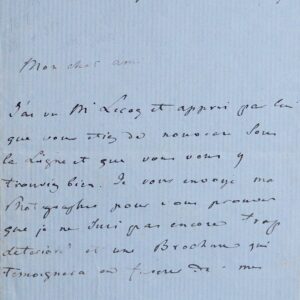 Mon cher ami
J'ai vu Mr Lecoq et appris par lui
que vous étiez de nouveau sous
la Ligne et que vous vous y
trouviez bien. Je vous envoye ma
Photographie pour vous prouver
que je ne suis pas encore trop
deterioré et une Brochure qui
temoignera en faveur de mes